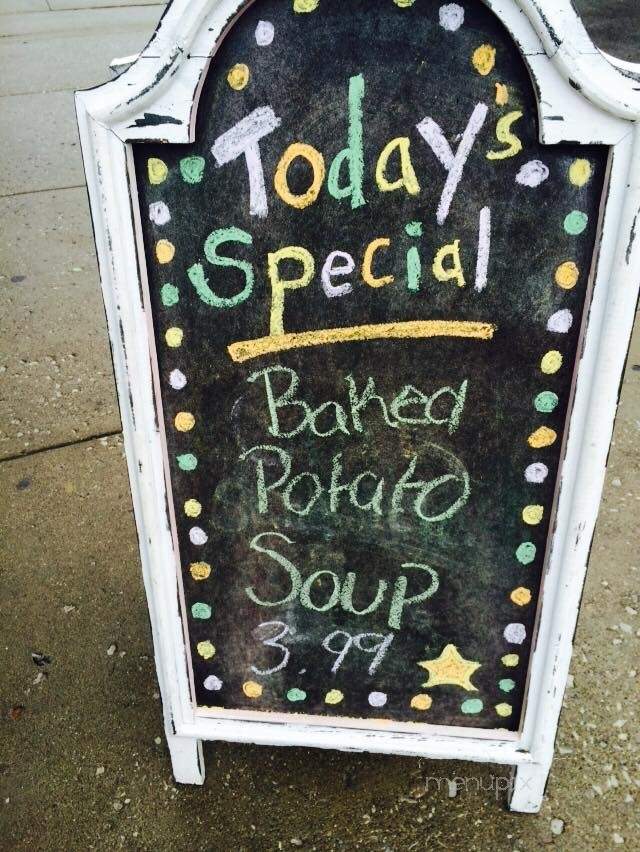 Today's
Special
Baked
Potato
Soup
3.99
menupix